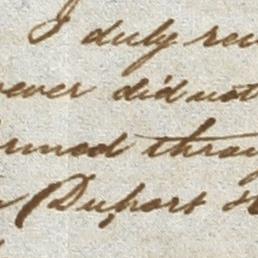 I duly rec
ever did not
rmed throu
(Duport H